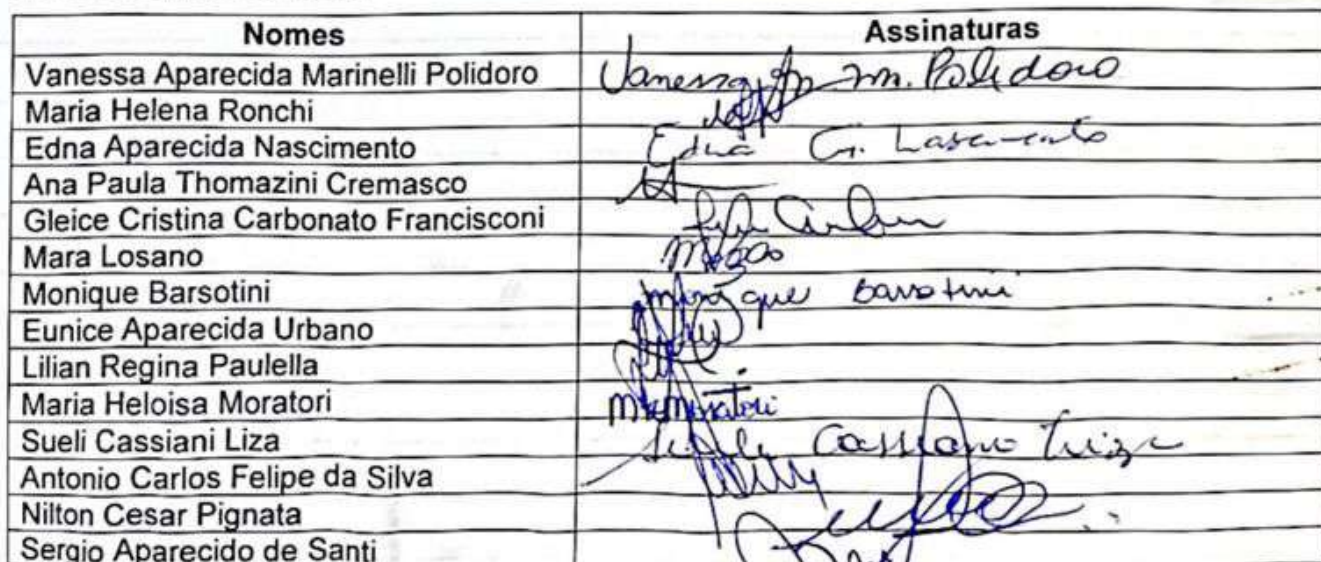 Nomes Assinaturas
Vanessa Aparecida Marinelli Polidoro Vanessa Ap m. Polidoro
Maria Helena Ronchi
Edna Aparecida Nascimento Edna G. Nascimento
Ana Paula Thomazini Cremasco
Gleice Cristina Carbonato Francisconi
Mara Losano
Monique Barsotini Monique Barsotini
Eunice Aparecida Urbano
Lilian Regina Paulella
Maria Heloisa Moratori MHMoratori
Sueli Cassiani Liza
Antonio Carlos Felipe da Silva
Nilton Cesar Pignata
Sergio Aparecido de Santi